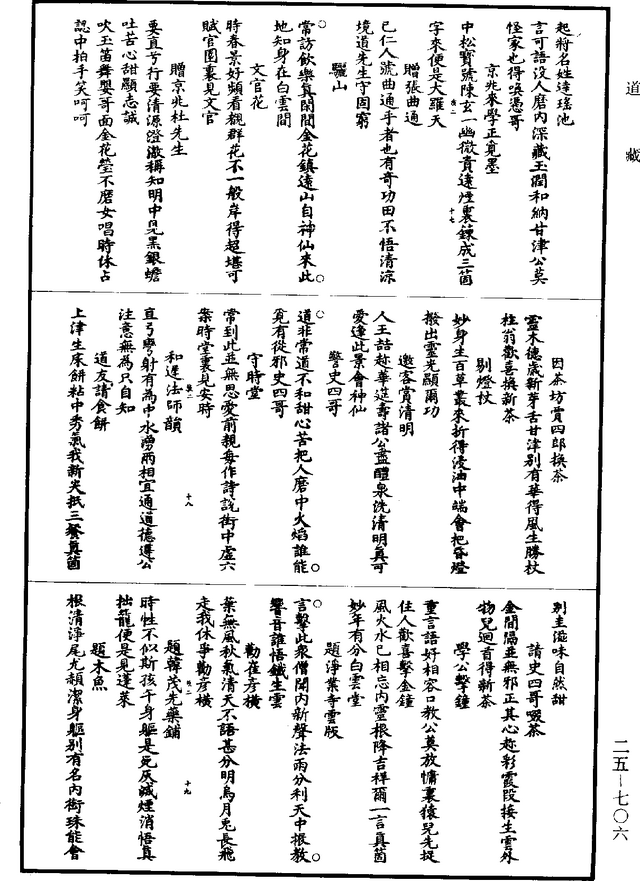 道藏
起將名姓達瑤池
言可語沒人磨內深藏玉潤和納甘津公莫
怪家也得喚憑哥
京兆來學正覓墨
中松寶號陳玄一幽微貴遠煙裏鍊成三箇
字來便是大羅天
贈張曲通
已仁人號曲通乎者也有奇功田不悟清涼
境道先生守固窮
驪山
常訪飲樂真閑閑金花鎮遠山自神仙來此
地知身在白雲間
文官花
時春景好頻看觀群花不一般岸得超堪可
賦官園裏見文官
贈京兆杜先生
要直兮行要清源澄澈稱知明中見黑銀蟾
吐苦心甜顯志誠
吹玉笛舞嬰哥面金花瑩不磨女唱時休占
認中拍手笑呵呵
因茶坊賞四郎換茶
靈木德歲新芽舌甘津別有華得風生勝杖
柱翁歡喜換新茶
剔燈杖
妙身生百草叢來折得浸油中端會把昏燈
撥出靈光顯爾功
邀客賞清明
人王喆趂華筵壽諸公盡醴泉洗清明真可
愛逢此景會神仙
警史四哥
道非常道不和甜心苦把人磨中火焰誰能
覓有從邪史四哥
守時堂
常到此並無思愛前親每作詩說街中虛六
案時堂裏見安時
和運法師韻
直弓彎射有為中水澇兩相宜通道德還公
注意無為只自知
道友請食餅
上津生床餅粘中秀氣我新炎抵三餐真箇
別圭滋味自然甜
請史四哥啜茶
金間隔並無邪正其心趂彩霞段接生雲外
物兒迴首得新茶
學公擊鐘
重言語好相容口教公莫放慵裏猿兒先捉
住人歡喜擊金鐘
風火水已相忘內靈根降吉祥爾一言真箇
妙年有分白雲堂
題淨業寺雲版
言擊此衆僧聞內新聲法雨分利天中振教
響音誰悟鐵生雲
勸崔彥橫
葉無風秋氣清天不語甚分明烏月兎長飛
走我休爭勸彥橫
題韓茂先藥鋪
時性不似斯孩千身軀是免灰滅煙消悟真
拙籠便是見蓬萊
題木魚
根清淨尾尤頳潔身軀別有名內銜珠能會
二五—七〇六